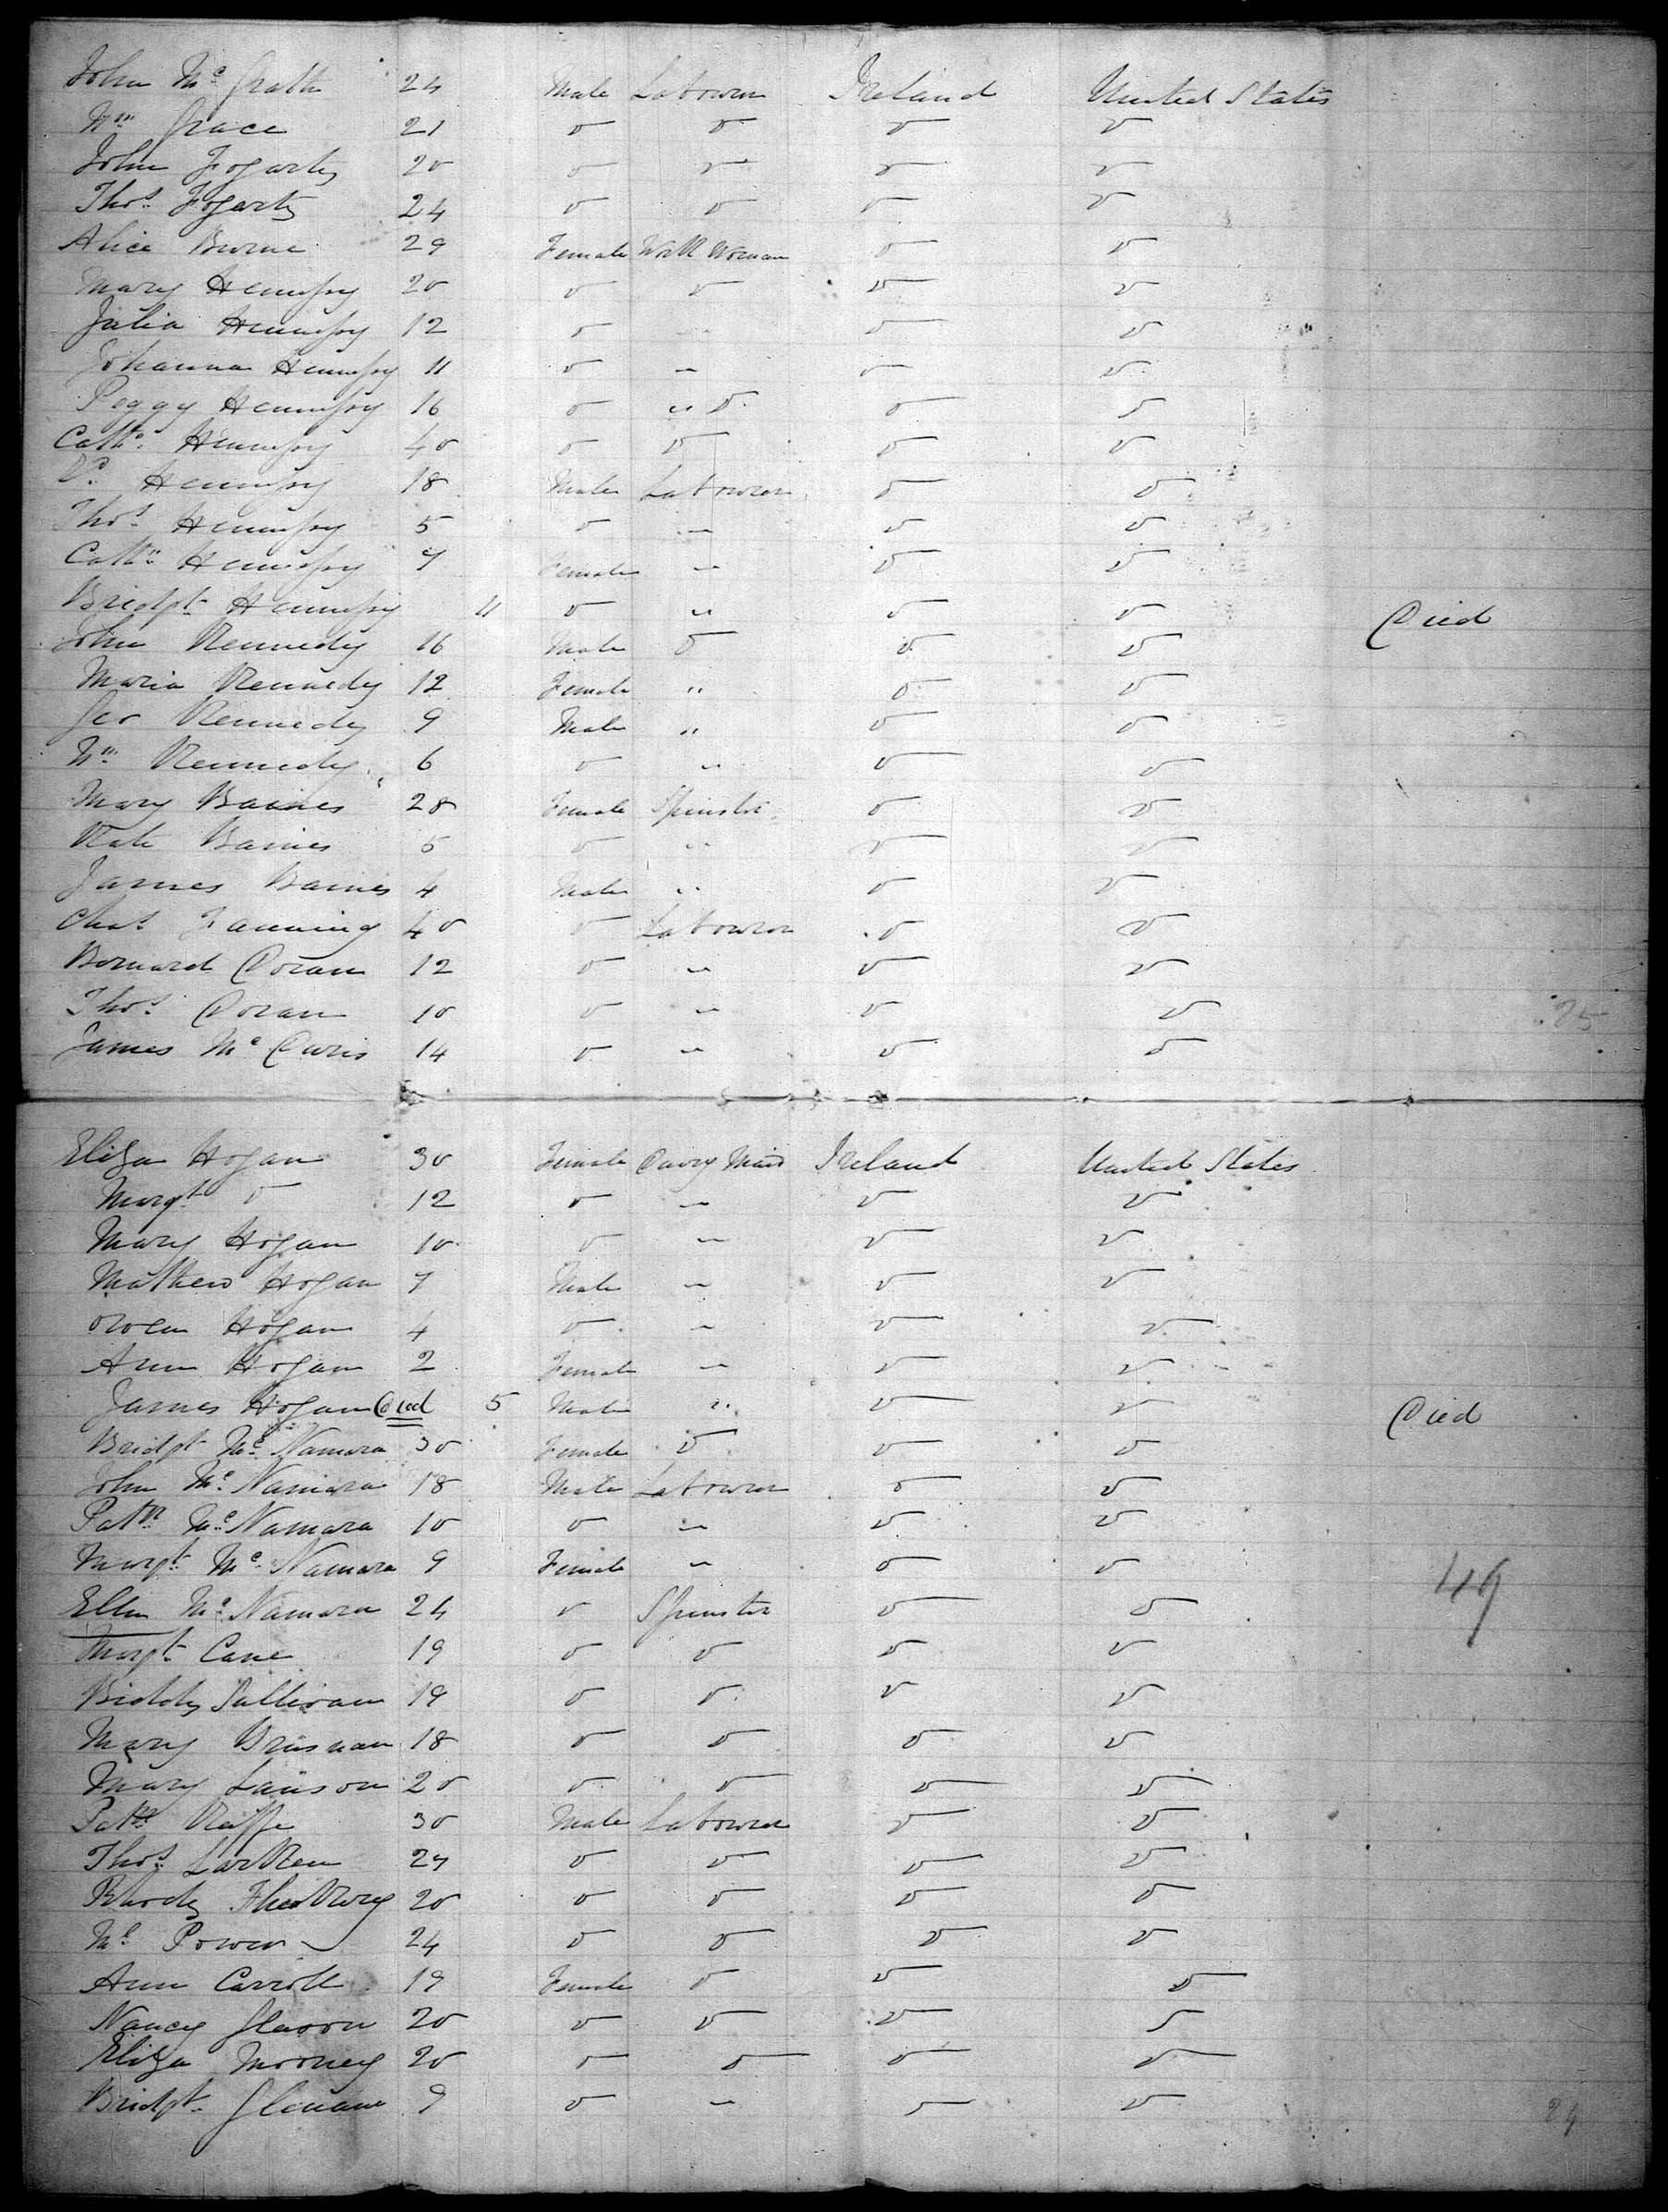 John McGrath 24 Male Labourer Ireland United States
Wm Grace 21 Do Do Do Do
John Fogarty 20 Do Do Do Do
Thos. Fogarty 24 Do Do Do Do
Alice Burne 29 Female Work Woman Do Do
Mary Hennessy 20 Do Do Do Do
Julia Hennessy 12 Do " Do Do
Johanna Hennessy 11 Do " Do Do
Peggy Hennessy 16 Do " Do Do Do
Cathe. Hennessy 40 Do Do Do Do
Hennessy 18 Male Labourer Do Do
Thos. Hennessy 5 Do " Do Do
Cathe. Hennessy 7 Female " Do Do
Bridgt. Hennessy 11 Do " Do Do Died
John Kennedy 16 Male Do Do Do
Maria Kennedy 12 Female " Do Do
Geo Kennedy 9 Male " Do Do
Wm Kennedy 6 Do " Do Do
Mary Baines 28 Female Spinster Do Do
Kate Baines 5 Do " Do Do
James Baines 4 Male " Do Do
Chas Fanning 40 Do Labourer Do Do
Bernard Doran 12 Do " Do Do
Thos. Doran 10 Do " Do Do
25
James Mc 14 Do " Do Do
Eliza Hogan 30 Female Dairy Maid Ireland United States
Margt Do 12 Do " Do Do
Mary Hogan 10 Do " Do Do
Mathew Hogan 7 Male " Do Do
Owen Hogan 4 Do " Do Do
Ann Hogan 2 Female " Do Do
James Hogan Died 5 Male " Do Do Died
Bridgt McNamara 30 Female Do Do Do
John McNamara 18 Male Labourer Do Do
Patk McNamara 10 Do " Do Do
Margt. McNamara 9 Female " Do Do
49
Ellen McNamara 24 Do Spinster Do Do
Margt. Cane 19 Do Do Do Do
Biddy Sullivan 19 Do Do Do Do
Mary 18 Do Do Do Do
Mary 20 Do Do Do Do
Patk 30 Male Labourer Do Do
Thos. Larken 27 Do Do Do Do
20 Do Do Do Do
Power 24 Do Do Do Do
Ann Carroll 19 Female Do Do Do
Nancy Gleeson 20 Do Do Do Do
Eliza Mooney 20 Do Do Do Do
Bridgt. 9 Do " Do Do
24